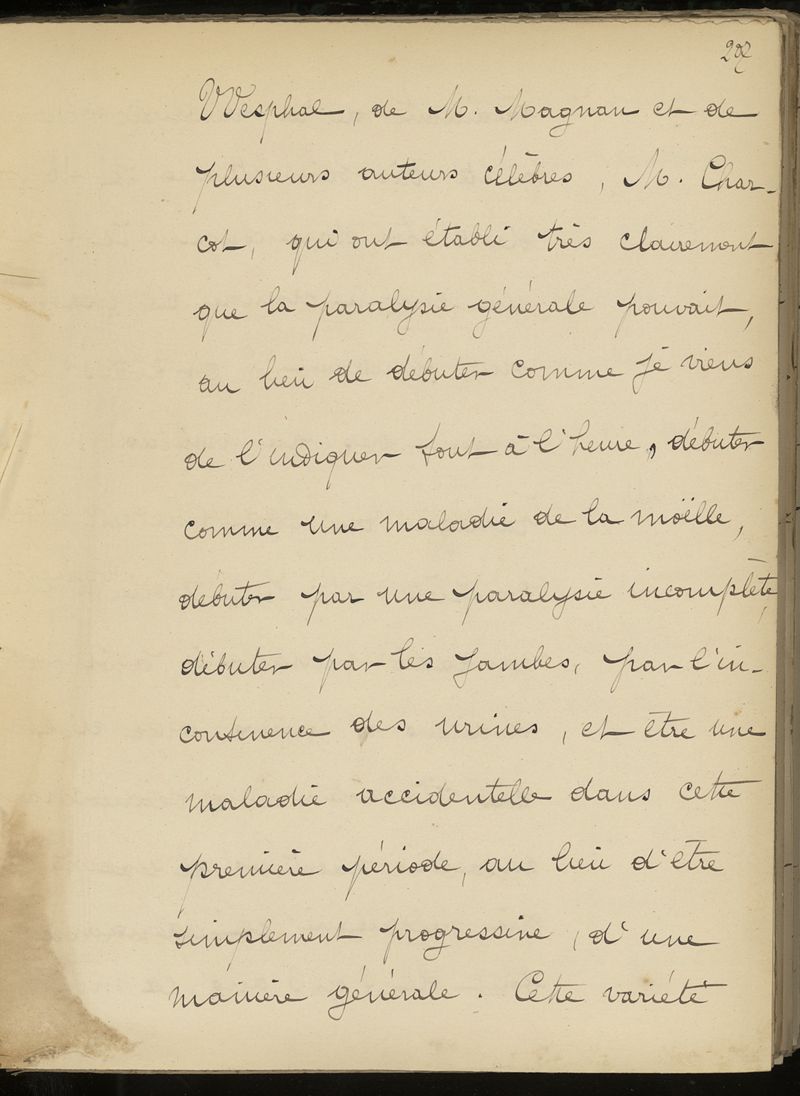 207
Wesphal, de M. Magnan et de
plusieurs auteurs célèbres, M. Char-
cot, qui ont établi très clairement
que la paralysie générale pouvait,
au lieu de débuter comme je viens
de l'indiquer tout à l'heure, débuter
comme une maladie de la moëlle,
débuter par une paralysie incomplète,
débuter par les jambes, par l'in-
continence des urines, et être une
maladie accidentelle dans cette
première période, au lieu d'être
simplement progressive, d'une
manière générale. Cette variété